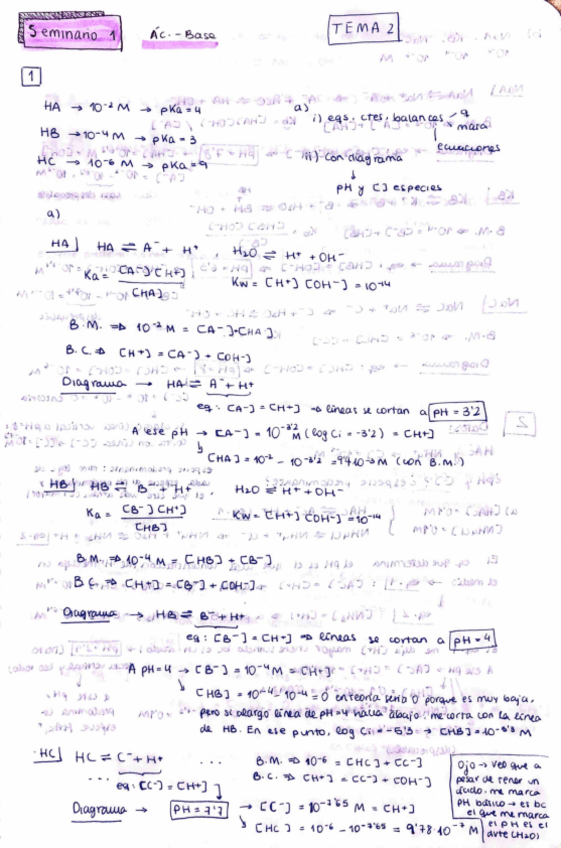 Seminario 1 Ác.-Base TEMA 2
1
HA → 10⁻² M → pKa = 4
HB → 10⁻⁴ M → pKa = 3
HC → 10⁻⁶ M → pKa = 9
a)
i) eqs. ctes, balances
masa
ecuaciones
ii) con diagrama
pH y [] especies
a)
HA| HA ⇌ A⁻ + H⁺ H₂O ⇌ H⁺ + OH⁻
Ka = [A⁻][H⁺] / [HA] Kw = [H⁺][OH⁻] = 10⁻¹⁴
B.M. ⇒ 10⁻² M = [A⁻] + [HA]
B.C. ⇒ [H⁺] = [A⁻] + [OH⁻]
Diagrama → HA ⇌ A⁻ + H⁺
eq: [A⁻] = [H⁺] ⇒ líneas se cortan a pH = 3'2
A ese pH → [A⁻] = 10⁻³'² M (log Ci = -3'2) = [H⁺]
[HA] = 10⁻² - 10⁻³'² = M (con B.M.)
HB| HB ⇌ B⁻ + H⁺ H₂O ⇌ H⁺ + OH⁻
Ka = [B⁻][H⁺] / [HB] Kw = [H⁺][OH⁻] = 10⁻¹⁴
B.M. ⇒ 10⁻⁴ M = [HB] + [B⁻]
B.C. ⇒ [H⁺] = [B⁻] + [OH⁻]
Diagrama → HB ⇌ B⁻ + H⁺
eq: [B⁻] = [H⁺] ⇒ líneas se cortan a pH = 4
A pH = 4 → [B⁻] = 10⁻⁴ M = [H⁺]
[HB] = 10⁻⁴ - 10⁻⁴ = 0 en teoría sería 0 porque es muy baja,
pero si alargo línea de pH = 4 hacia abajo, me corta con la línea
de HB. En ese punto, log Ci = -5'3 → [HB] = 10⁻⁵'³ M
HC| HC ⇌ C⁻ + H⁺ ... B.M. ⇒ 10⁻⁶ = [HC] + [C⁻]
... eq: [C⁻] = [H⁺] B.C. ⇒ [H⁺] = [C⁻] + [OH⁻]
Diagrama → pH = 7'7 → [C⁻] = 10⁻⁷'⁶⁵ M = [H⁺]
[HC] = 10⁻⁶ - 10⁻⁷'⁶⁵ = 9'78·10⁻⁷ M
Ojo → veo que a
pesar de tener un
ácido, me marca
pH básico → es bc
el que me marca
el pH es el
(H₂O)